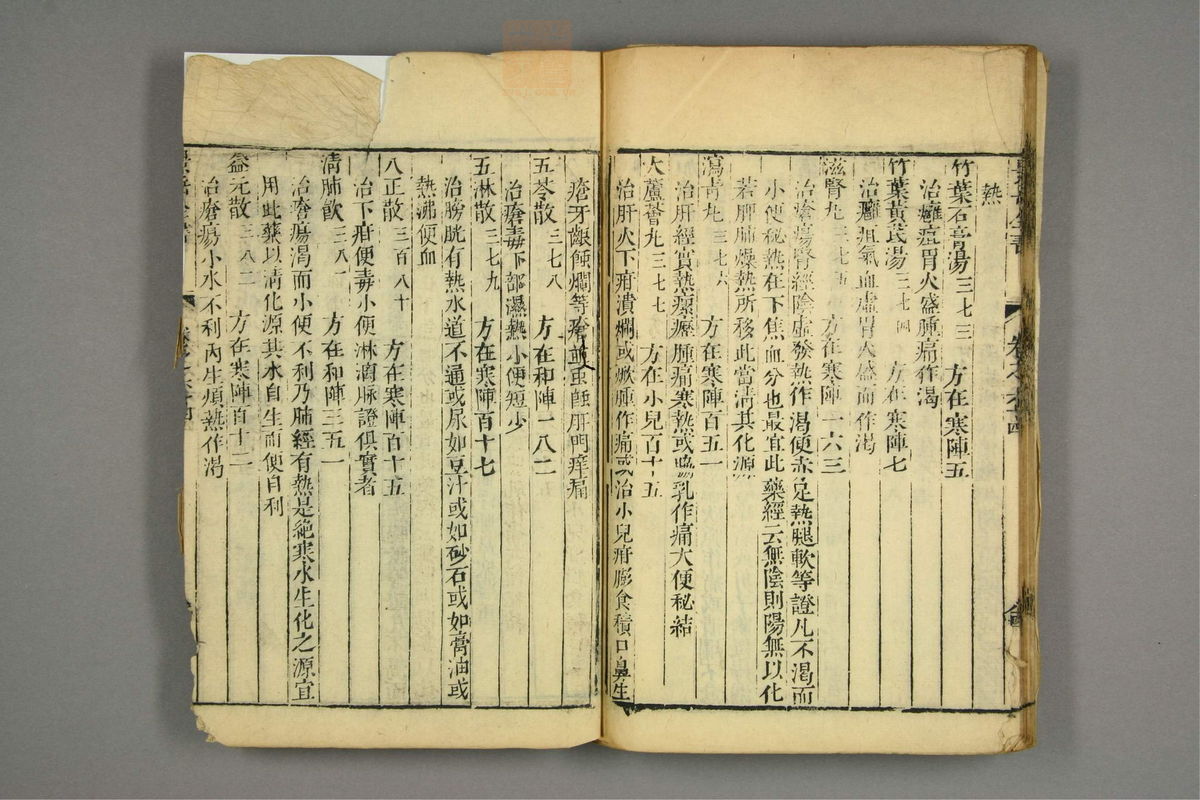 熱
竹葉石膏湯三七三 方在寒陣五
治癰疽胃火盛腫痛作渴
竹葉黃芪湯三七四 方在寒陣七
治癰疽氣血虛胃火盛而作渴
滋腎丸三七五 方在寒陣一六三
治瘡瘍腎經陰虛發熱作渴便赤足熱腿軟等證凡不渴而
小便秘熱在下焦血分也最宜此藥經云無陰則陽無以化
若脾肺燥熱所移此當清其化源
瀉青丸三七六 方在寒陣百五一
治肝經實熱瘰癧腫痛寒熱或脇乳作痛大便秘結
大蘆薈丸三七七 方在小兒百十五
治肝火下疳潰爛或㾵腫作痛或治小兒疳膨食積口鼻生
瘡牙齦蝕爛等瘡並蟲蝕肝門痒痛
五苓散三七八 方在和陣一八二
治瘡毒下部濕熱小便短少
五淋散三七九 方在寒陣百十七
治膀胱有熱水道不通或尿如豆汁或如砂石或如膏油或
熱沸便血
八正散三百八十 方在寒陣百十五
治下疳便毒小便淋瀝脉證俱實者
清肺飲三八一 方在和陣三五一
治瘡瘍渴而小便不利乃肺經有熱是絕寒水生化之源宜
用此藥以清化源其水自生而便自利
益元散三八二 方在寒陣百十二
治瘡瘍小水不利內生煩熱作渴